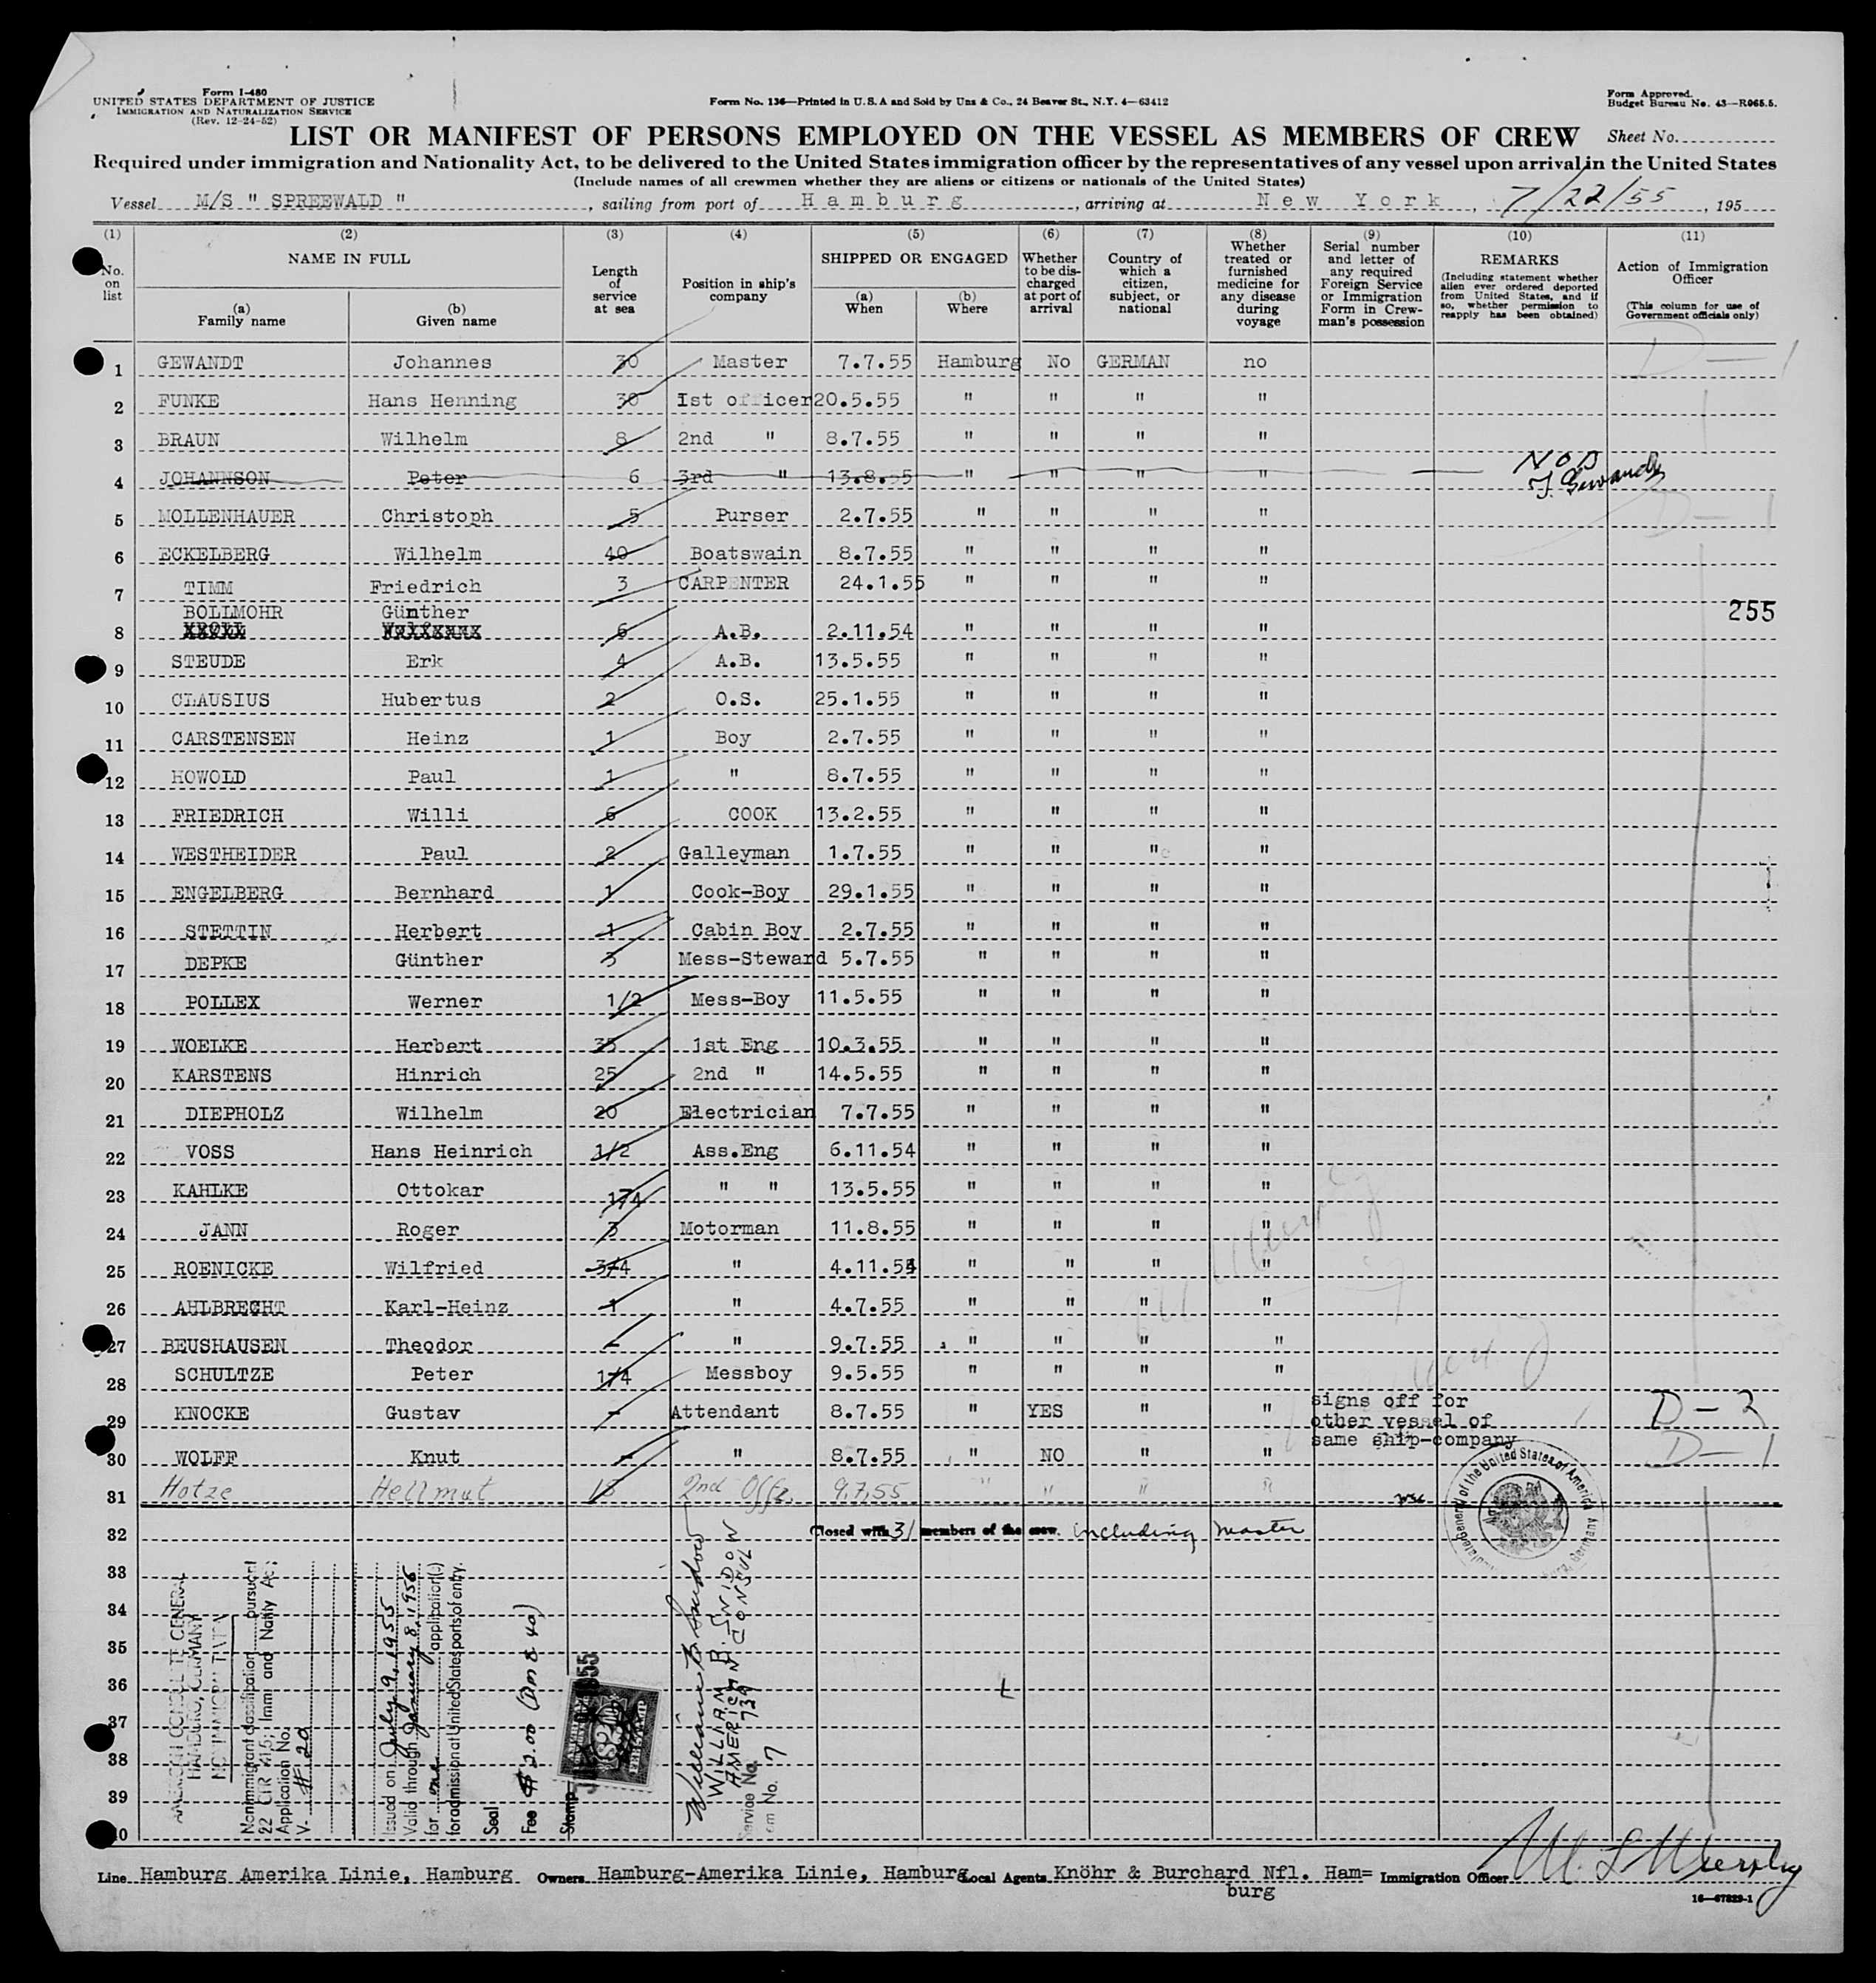 Form I-480
UNITED STATES DEPARTMENT OF JUSTICE
IMMIGRATION AND NATURALIZATION SERVICE
(Rev. 12-24-52)
Form No. 136—Printed in U.S.A and Sold by Unz & Co., 24 Beaver St., N.Y. 4—63412
Form Approved.
Budget Bureau No. 43—R065.5.
LIST OR MANIFEST OF PERSONS EMPLOYED ON THE VESSEL AS MEMBERS OF CREW
Sheet No.
Required under immigration and Nationality Act, to be delivered to the United States immigration officer by the representatives of any vessel upon arrival in the United States
(Include names of all crewmen whether they are aliens or citizens or nationals of the United States)
Vessel M/S " SPREEWALD " , sailing from port of Hamburg , arriving at New York , 7/22/55 , 195
(1) (2) (3) (4) (5) (6) (7) (8) (9) (10) (11)
No. on list
NAME IN FULL
(a) Family name
(b) Given name
Length of service at sea
Position in ship's company
SHIPPED OR ENGAGED
(a) When
(b) Where
Whether to be discharged at port of arrival
Country of which a citizen, subject, or national
Whether treated or furnished medicine for any disease during voyage
Serial number and letter of any required Foreign Service or Immigration Form in Crewman's possession
REMARKS
(Including statement whether alien ever ordered deported from United States, and if so, whether permission to reapply has been obtained)
Action of Immigration Officer
(This column for use of Government officials only)
1 GEWANDT Johannes 30 Master 7.7.55 Hamburg No GERMAN no D-1
2 FUNKE Hans Henning 30 Ist officer 20.5.55 " " " "
3 BRAUN Wilhelm 8 2nd " 8.7.55 " " " "
4 JOHANNSON Peter 6 3rd " 13.8.55 " " " " N.O.B J. Gewandt
5 MOLLENHAUER Christoph 5 Purser 2.7.55 " " " " D-1
6 ECKELBERG Wilhelm 40 Boatswain 8.7.55 " " " "
7 TIMM Friedrich 3 CARPENTER 24.1.55 " " " "
BOLLMOHR Günther 255
8 6 A.B. 2.11.54 " " " "
9 STEUDE Erk 4 A.B. 13.5.55 " " " "
10 CLAUSIUS Hubertus 2 O.S. 25.1.55 " " " "
11 CARSTENSEN Heinz 1 Boy 2.7.55 " " " "
12 HOWOLD Paul 1 " 8.7.55 " " " "
13 FRIEDRICH Willi 6 COOK 13.2.55 " " " "
14 WESTHEIDER Paul 2 Galleyman 1.7.55 " " " "
15 ENGELBERG Bernhard 1 Cook-Boy 29.1.55 " " " "
16 STETTIN Herbert 1 Cabin Boy 2.7.55 " " " "
17 DEPKE Günther 3 Mess-Steward 5.7.55 " " " "
18 POLLEX Werner 1/2 Mess-Boy 11.5.55 " " " "
19 WOELKE Herbert 35 1st Eng 10.3.55 " " " "
20 KARSTENS Hinrich 25 2nd " 14.5.55 " " " "
21 DIEPHOLZ Wilhelm 20 Electrician 7.7.55 " " " "
22 VOSS Hans Heinrich 1/2 Ass.Eng 6.11.54 " " " "
23 KAHLKE Ottokar 1/4 " " 13.5.55 " " " "
24 JANN Roger 3 Motorman 11.8.55 " " " "
25 ROENICKE Wilfried 3/4 " 4.11.54 " " " "
26 AHLBRECHT Karl-Heinz 1 " 4.7.55 " " " "
27 BEUSHAUSEN Theodor - " 9.7.55 " " " "
28 SCHULTZE Peter 1/4 Messboy 9.5.55 " " " "
29 KNOCKE Gustav - Attendant 8.7.55 " YES " " signs off for other vessel of same ship-company D-2
30 WOLFF Knut - " 8.7.55 " NO " " D-1
31 Hotze Hellmut 13 2nd Offz. 9.7.55 " " " "
32 Closed with 31 members of the crew. including master
33
34
35
36
37
38
39
40
AMERICAN CONSULATE GENERAL
HAMBURG, GERMANY
Nonimmigrant classification pursuant
22 CFR 41.5; Immi and Natity Act
Application No.
V. #F 20
Issued on July 9, 1955
Valid through January 8, 1956
for one application(s)
for admission at United States ports of entry.
Seal
Fee $ 2.00 (DM 8.40)
Stamp
William B. Snidow
WILLIAM B. SNIDOW
AMERICAN CONSUL
Service No. 739
Item No. 7
Line Hamburg Amerika Linie, Hamburg Owners Hamburg-Amerika Linie, Hamburg Local Agents Knöhr & Burchard Nfl. Ham=
burg
Immigration Officer
16—67829-1